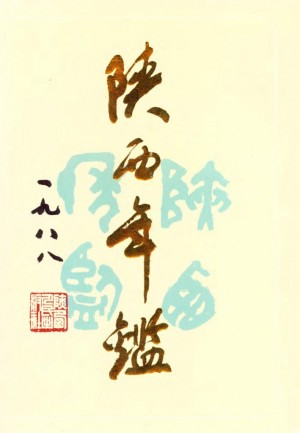 陕西年鑑
一九八八
陕西年鉴